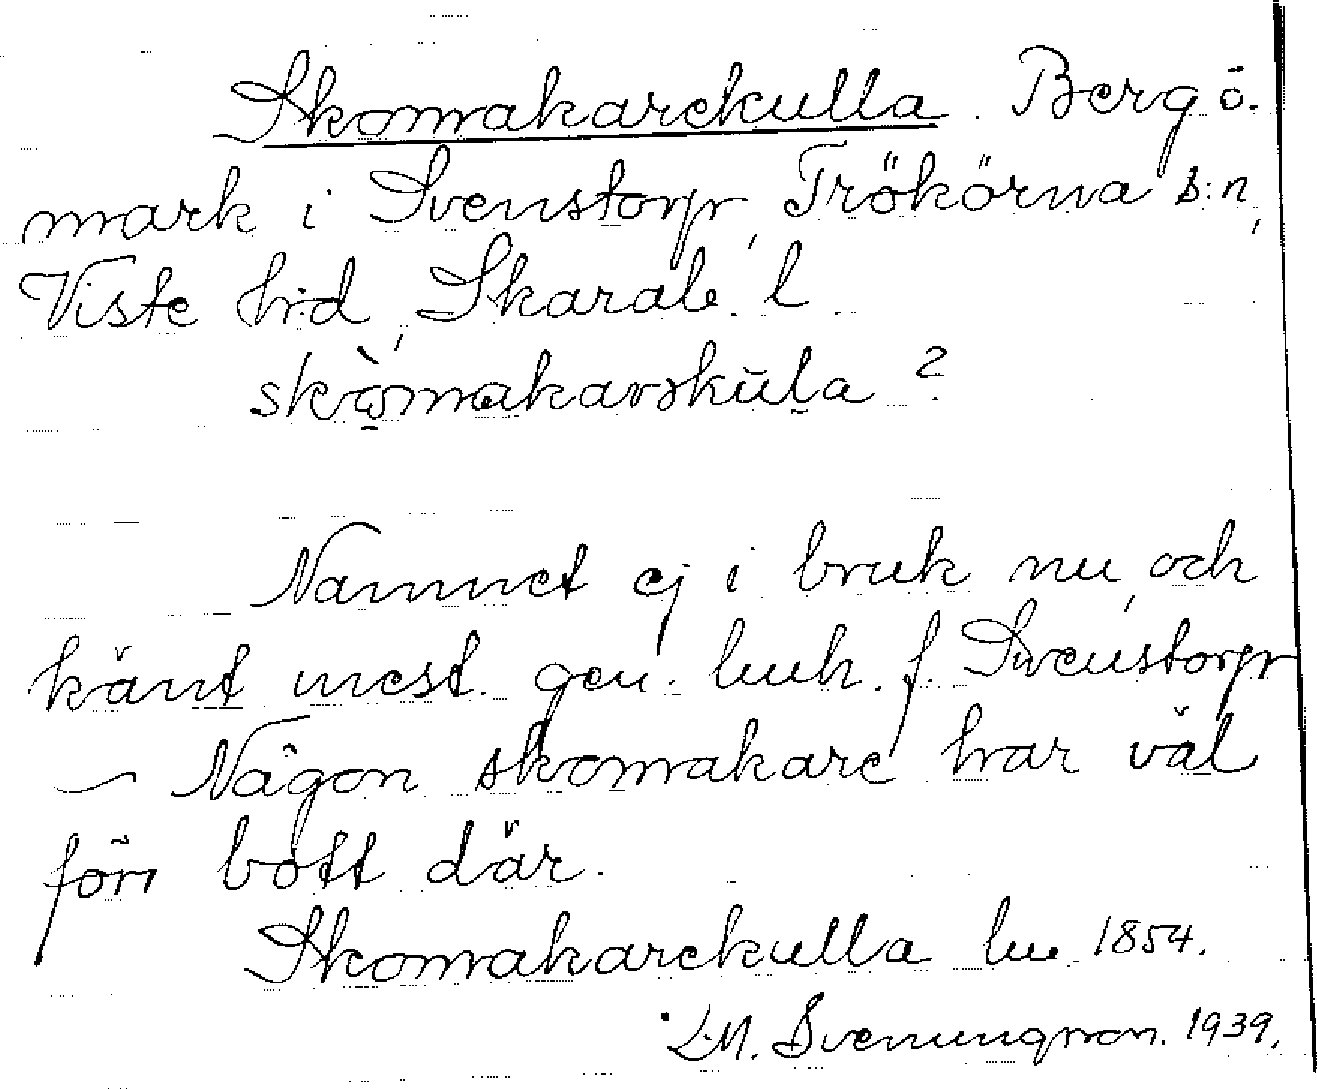 Skomakarekulla. Berg o.
mark i Svenstorp, Trökörna s:n,
Viste hrd, Skarab. l.
skòmakarskūla ?
Namnet ej i bruk nu, och
känt mest gen. luh. f. Svenstorp
— Någon skomakare har väl
förr bott där.
Skomakarekulla lu 1854.
L.M. Svenungsson. 1939.